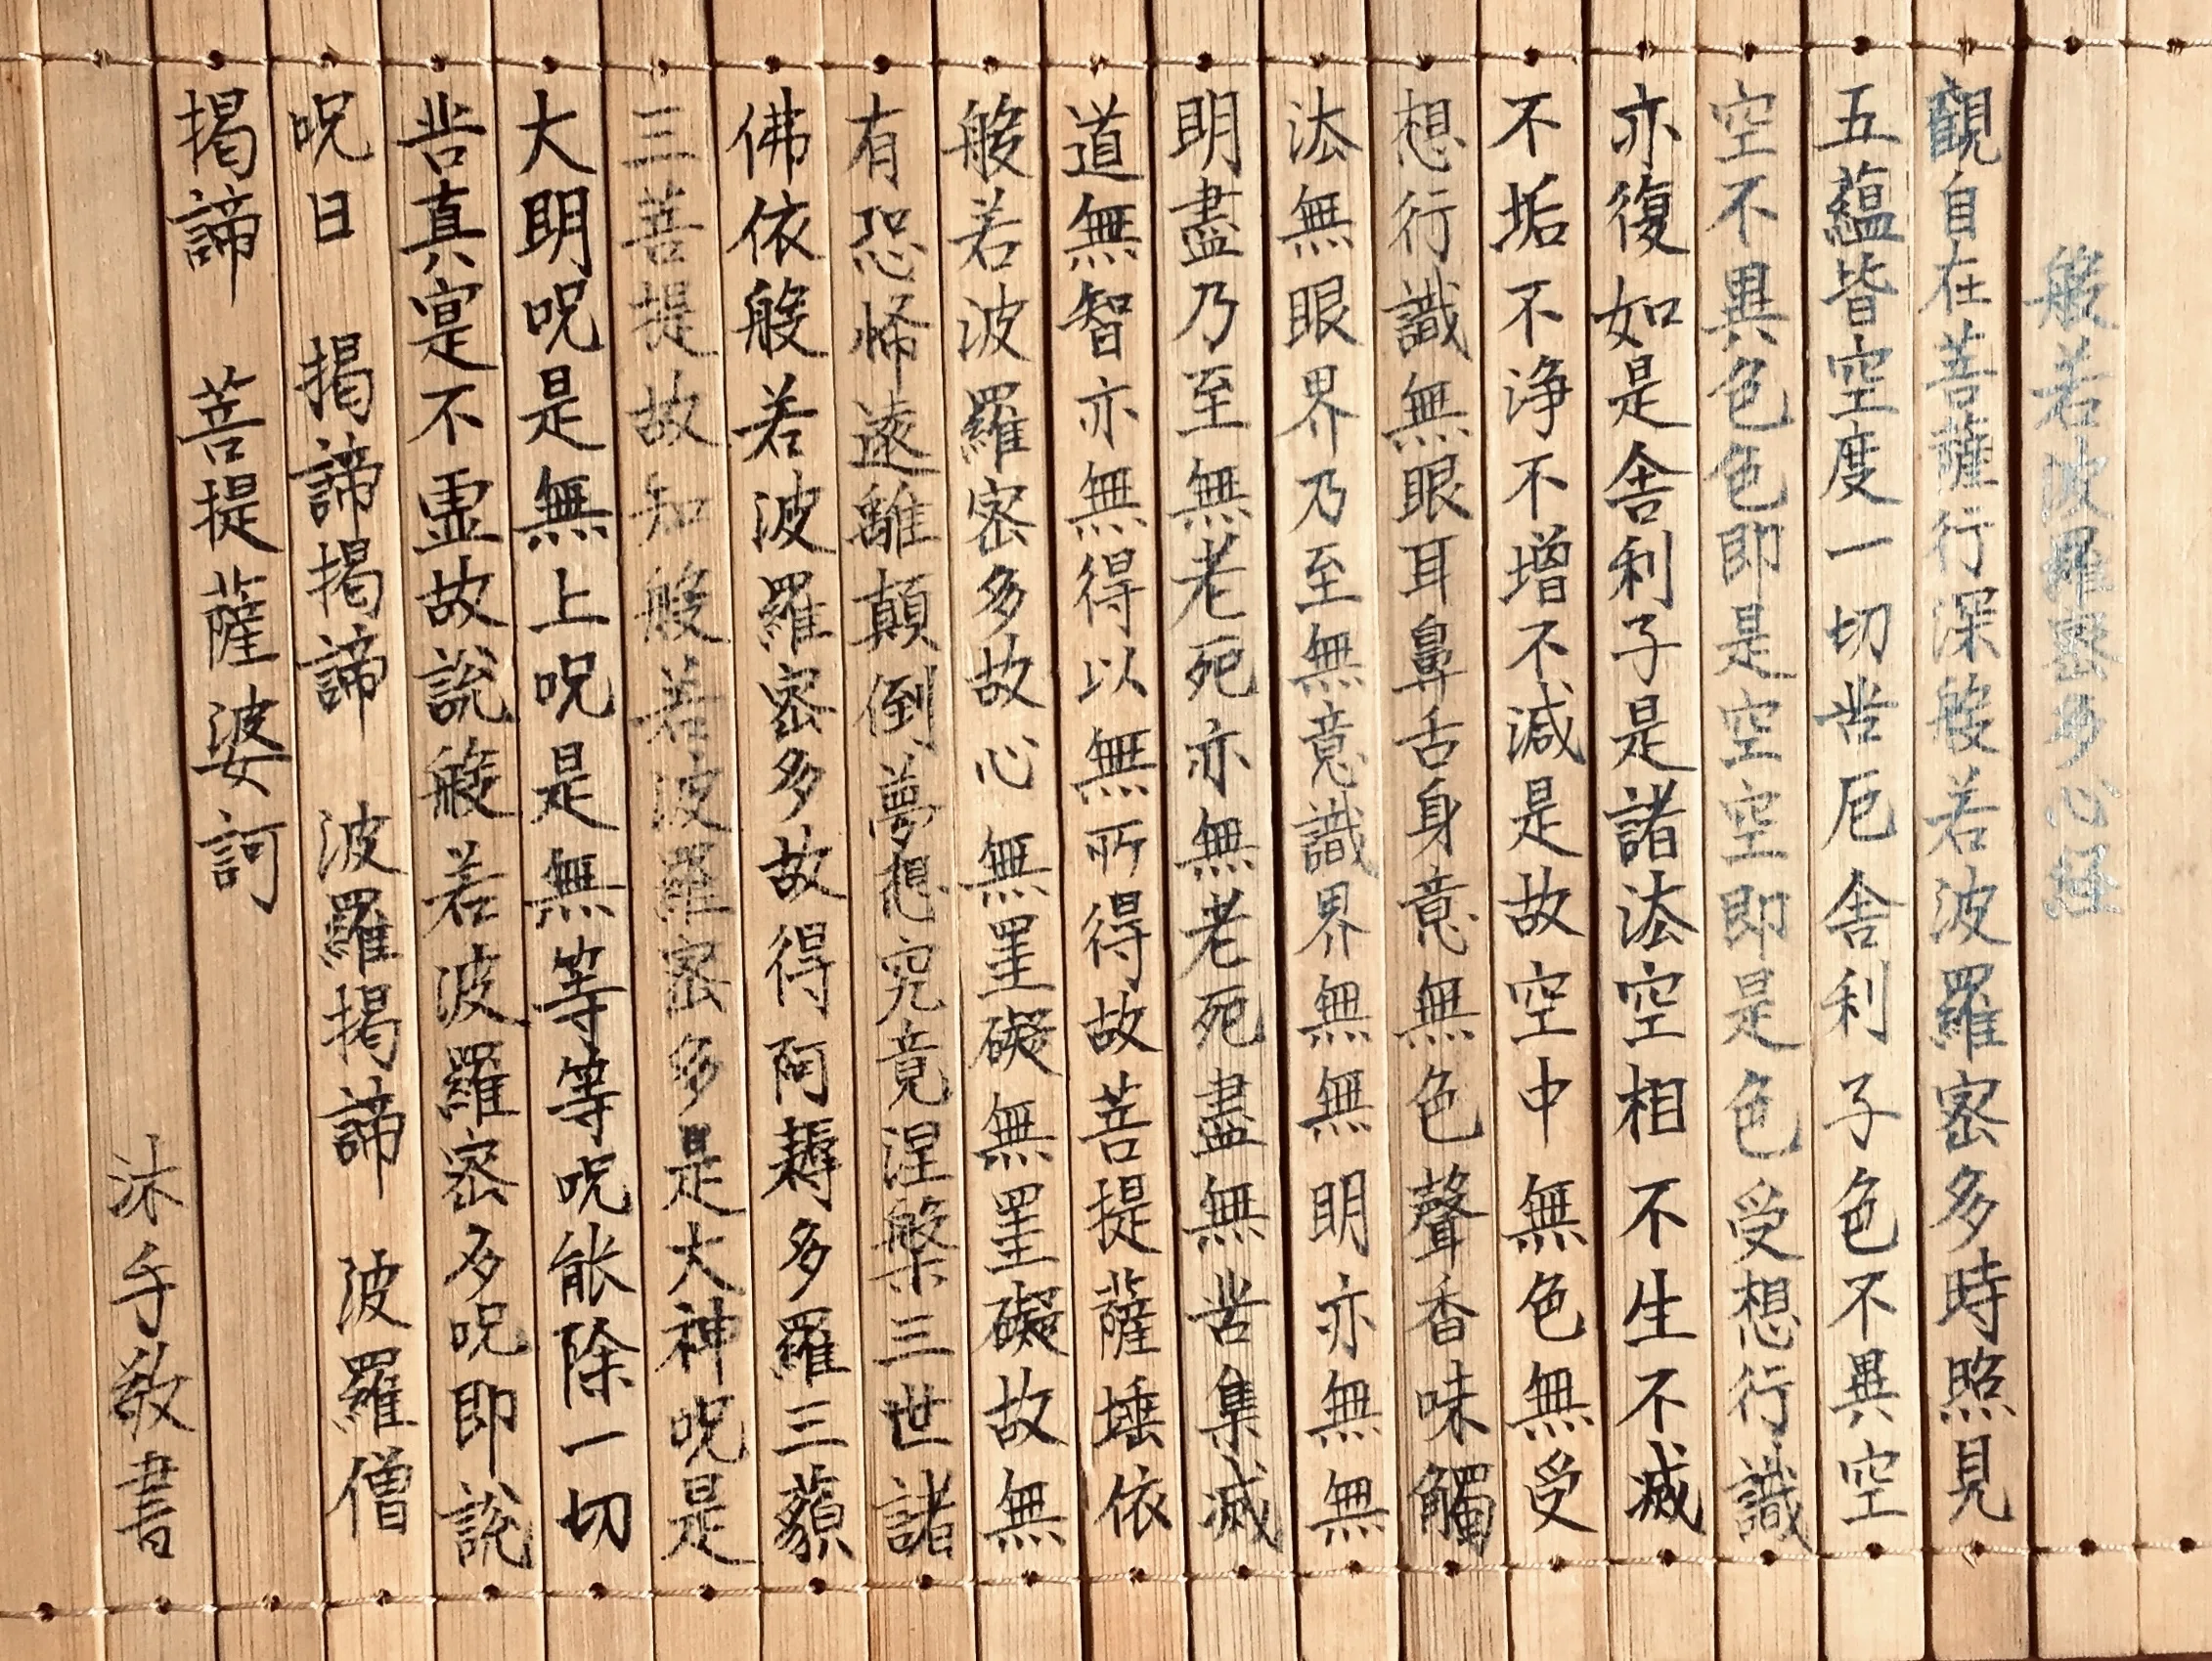 般若波羅密多心経
觀自在菩薩行深般若波羅密多時照見
五蘊皆空度一切苦厄舍利子色不異空
空不異色色即是空空即是色受想行識
亦復如是舍利子是諸法空相不生不滅
不垢不净不增不減是故空中無色無受
想行識無眼耳鼻舌身意無色聲香味觸
法無眼界乃至無意識界無無明亦無無
明盡乃至無老死亦無老死盡無苦集滅
道無智亦無得以無所得故菩提薩埵依
般若波羅密多故心無罣礙無罣礙故無
有恐怖遠離顛倒夢想究竟涅槃三世諸
佛依般若波羅密多故得阿耨多羅三藐
三菩提故知般若波羅密多是大神呪是
大明呪是無上呪是無等等呪能除一切
苦真寔不虛故說般若波羅密多呪即說
呪曰 揭諦揭諦 波羅揭諦 波羅僧
揭諦 菩提薩婆訶
沐手敬書